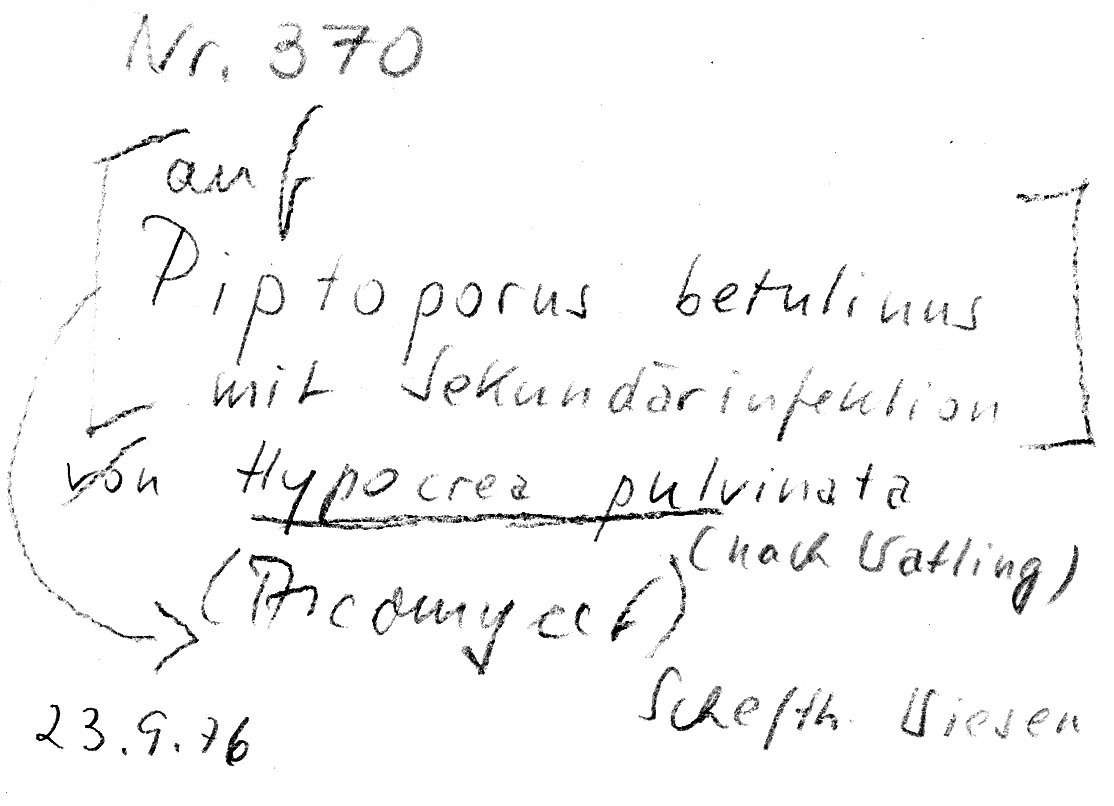 Nr. 370
[auf
Piptoporus betulinus
mit Sekundärinfektion]
von Hypocrea pulvinata
(nach Watling)
(Ascomycet)
Schefth. Wiesen
23.9.76